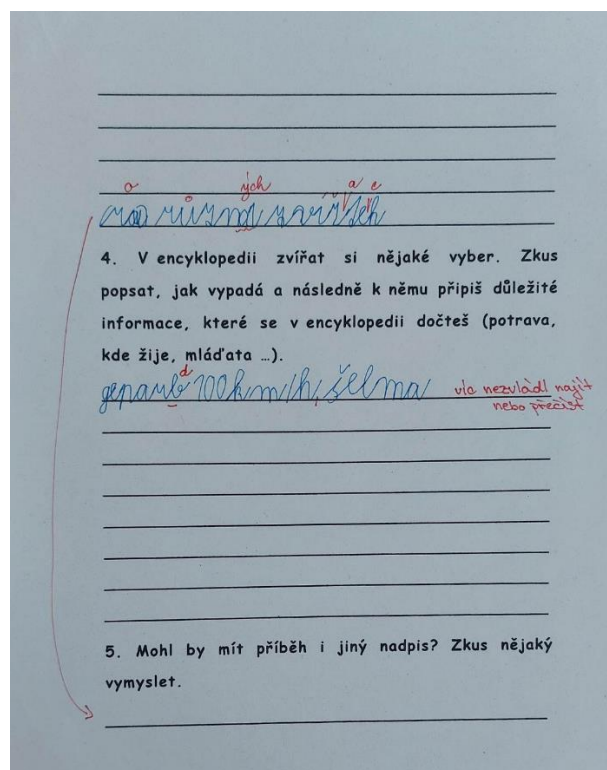 o ých a e
různ
4. V encyklopedii zvířat si nějaké vyber. Zkus
popsat, jak vypadá a následně k němu připiš důležité
informace, které se v encyklopedii dočteš (potrava,
kde žije, mláďata …).
d
gepaurb 100km/h, šelma víc nezvládl najít
nebo přečíst
5. Mohl by mít příběh i jiný nadpis? Zkus nějaký
vymyslet.